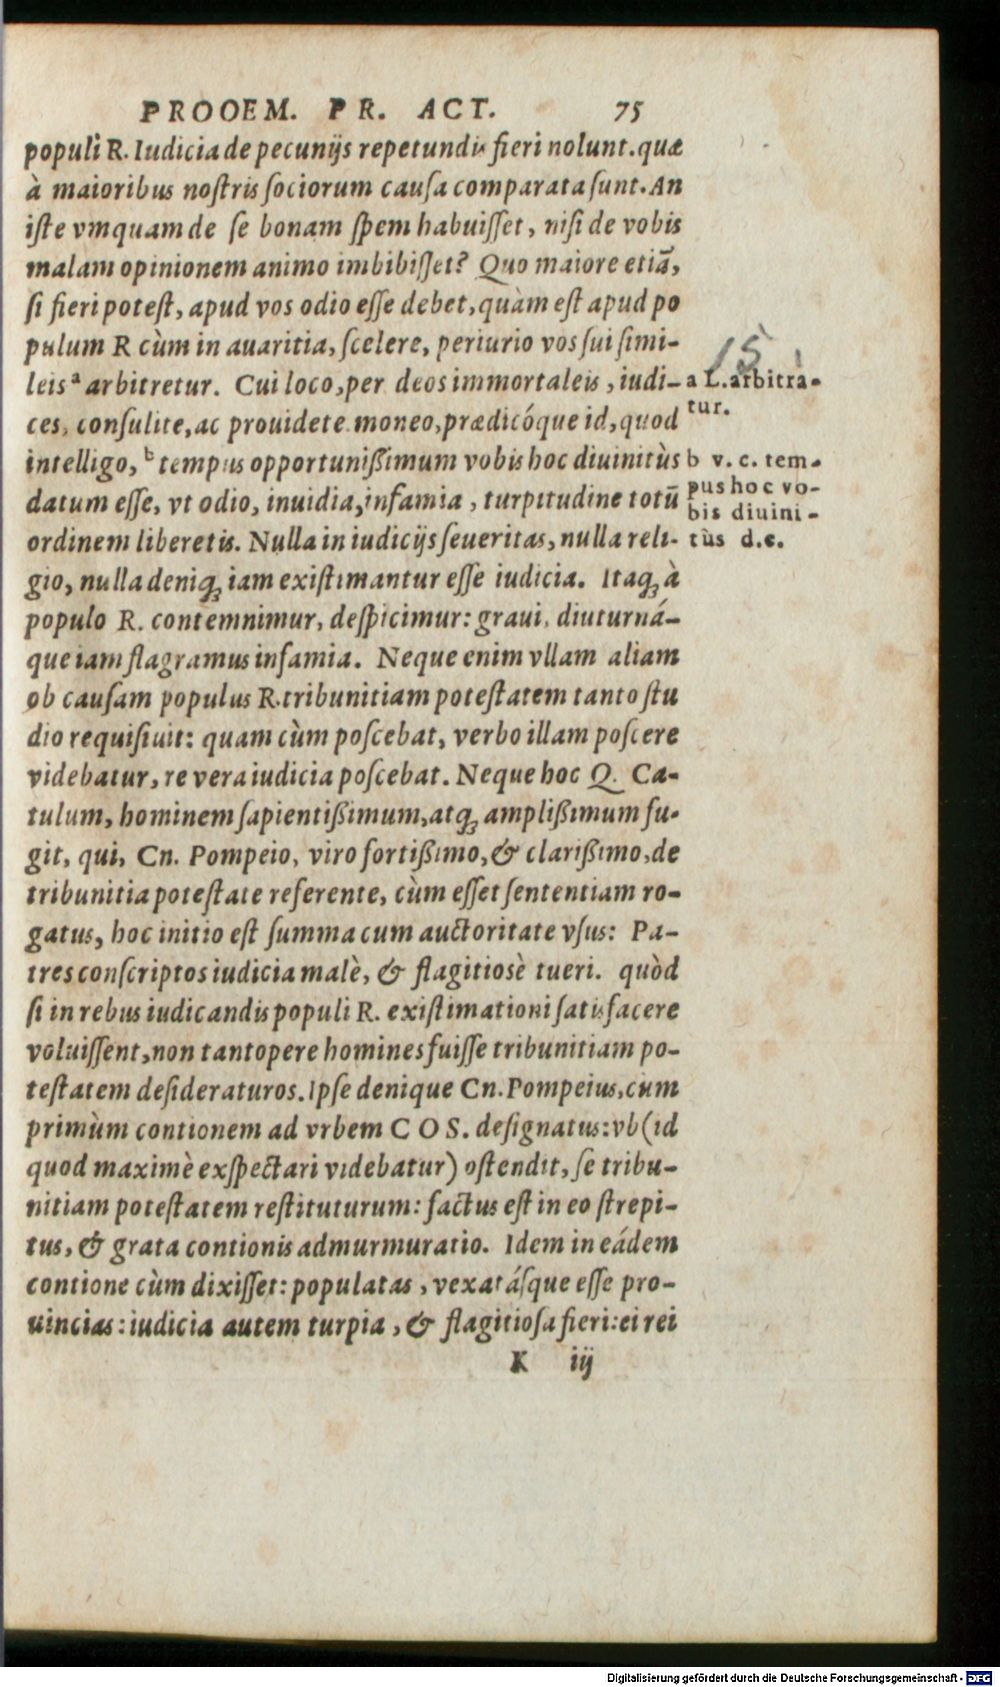 PROOEM. PR. ACT. 75
populi R. Iudicia de pecunijs repetundis fieri nolunt. quæ
à maioribus nostris sociorum causa comparata sunt. An
iste vmquam de se bonam spem habuisset, nisi de vobis
malam opinionem animo imbibisset? Quo maiore etiã,
si fieri potest, apud vos odio esse debet, quàm est apud po
pulum R cùm in auaritia, scelere, periurio vos sui simi-
leis ᵃ arbitretur. Cui loco, per deos immortaleis, iudi-
ces, consulite, ac prouidete moneo, prædicóque id, quod
intelligo, ᵇ tempus opportunißimum vobis hoc diuinitùs
datum esse, vt odio, inuidia, infamia, turpitudine totũ
ordinem liberetis. Nulla in iudicijs seueritas, nulla reli-
gio, nulla deniqꝫ iam existimantur esse iudicia. Itaqꝫ à
populo R. contemnimur, despicimur: graui, diuturná-
que iam flagramus infamia. Neque enim vllam aliam
ob causam populus R. tribunitiam potestatem tanto stu
dio requisiuit: quam cùm poscebat, verbo illam poscere
videbatur, re vera iudicia poscebat. Neque hoc Q. Ca-
tulum, hominem sapientißimum, atqꝫ amplißimum fu-
git, qui, Cn. Pompeio, viro fortißimo, & clarißimo, de
tribunitia potestate referente, cùm esset sententiam ro-
gatus, hoc initio est summa cum auctoritate vsus: Pa-
tres conscriptos iudicia malè, & flagitiosè tueri. quòd
si in rebus iudicandis populi R. existimationi satisfacere
voluissent, non tantopere homines fuisse tribunitiam po-
testatem desideraturos. Ipse denique Cn. Pompeius, cum
primùm contionem ad vrbem COS. designatus: vb (id
quod maximè exspectari videbatur) ostendit, se tribu-
nitiam potestatem restituturum: factus est in eo strepi-
tus, & grata contionis admurmuratio. Idem in eádem
contione cùm dixisset: populatas, vexatásque esse pro-
uincias: iudicia autem turpia, & flagitiosa fieri: ei rei
K iij
15
a L. arbitra-
tur.
b v. c. tem-
pus hoc vo-
bis diuini-
tùs d.e.
Digitalisierung gefördert durch die Deutsche Forschungsgemeinschaft - DFG